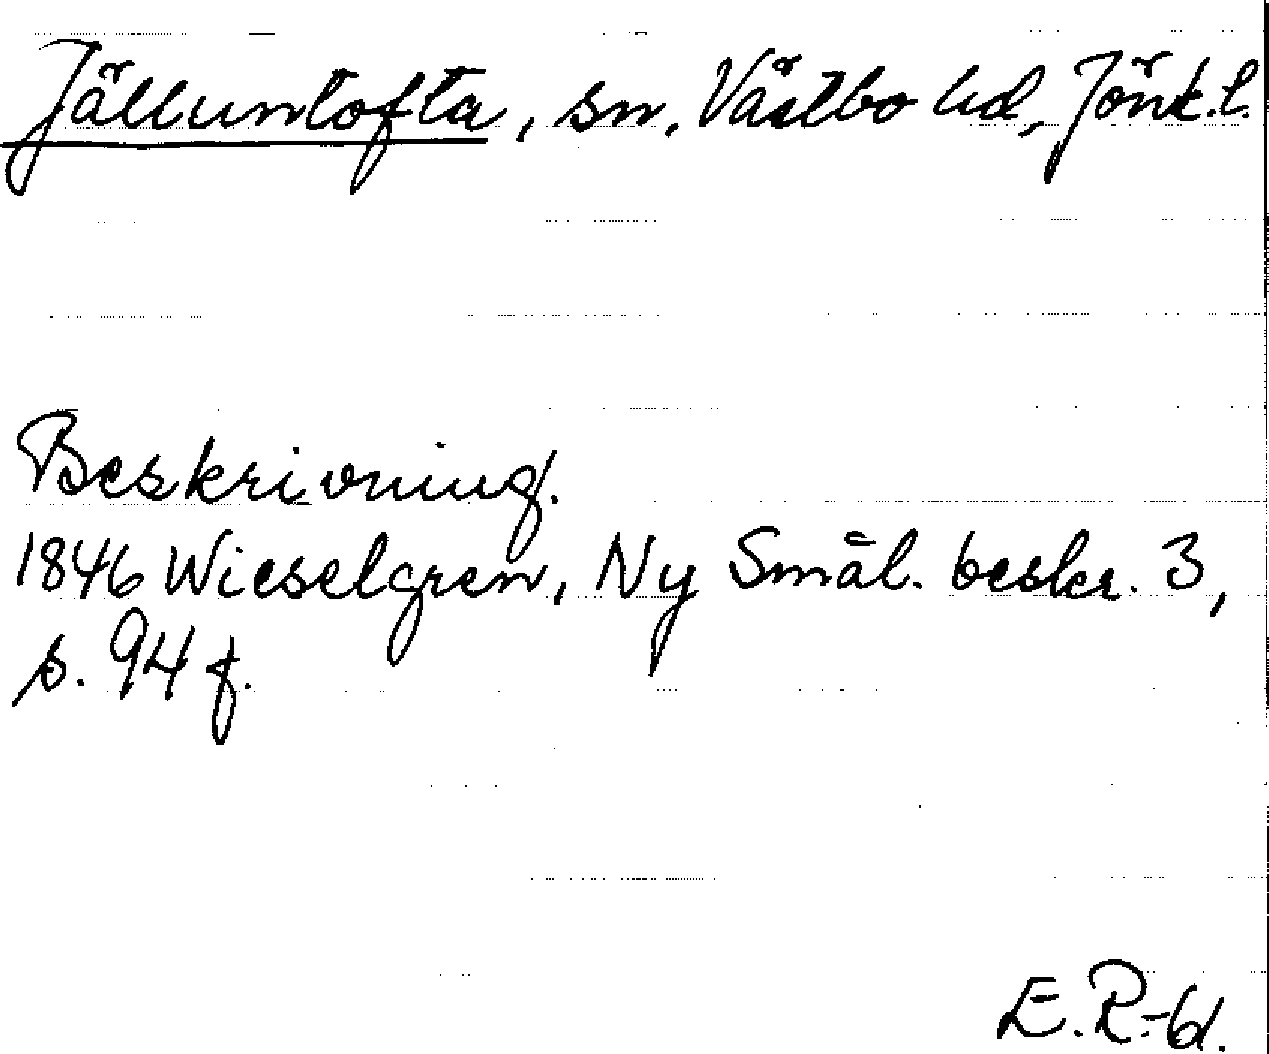 Jälluntofta, sn, Västbo hd, Jönk. l.
Beskrivning.
1846 Wieselgren, Ny Smål. beskr. 3,
s. 94 f.
E.R.-61.